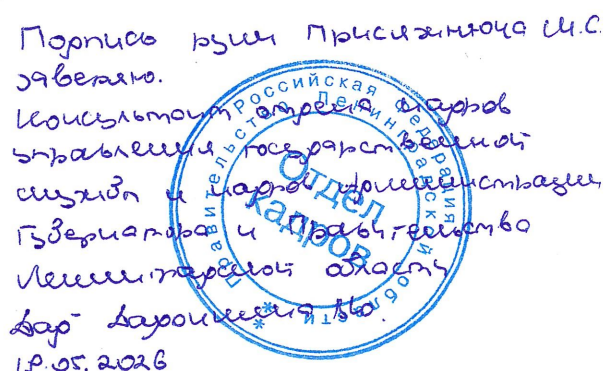 Подпись руки Присяжнюка М.С.
заверяю.
Консультант отдела кадров
управления государственной
службы и кадров Администрации
Губернатора и Правительства
Ленинградской области
Российская Федерация
Правительство Ленинградской области
Отдел
кадров
.05.2026